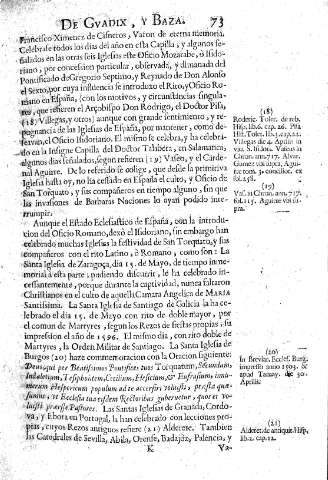 DE GVADIX, Y BAZA. 73
Francisco Ximenez de Cisneros, Varon de eterna memoria.
Celebrase todos los dias del año en esta Capilla, y algunos se-
ñalados en las otras seis Iglesias este Oficio Mozarabe, ò Isido-
riano, por concession particular, observada, y dimanada del
Pontificado de Gregorio Septimo, y Reynado de Don Alonso
el Sexto, por cuya influencia se introduxo el Rito, y Oficio Ro-
mano en España, (con los motivos, y circunstancias singula-
res, que refieren el Arçobispo Don Rodrigo, el Doctor Pisa,
(18) Villegas, y otros) aunque con grande sentimiento, y re-
pugnancia de las Iglesias de España, por mantener, como de-
seavan, el Oficio Isidoriano. El mismo se celebra, y ha celebra-
do en la Insigne Capilla del Doctor Talabera, en Salamanca,
algunos dias señalados, segun refieren (19) Vaseo, y el Carde-
nal Aguirre. De lo referido se colige, que desde la primitiva
Iglesia hasta oy, no ha cessado en España el culto, y Oficio de
San Torquato, y sus compañeros en tiempo alguno, sin que
las invasiones de Barbaras Naciones lo ayan podido inter-
rumpir.
Aunque el Estado Eclesiastico de España, con la introduc-
cion del Oficio Romano, dexò el Isidoriano, sin embargo han
celebrado muchas Iglesias la festividad de San Torquato, y sus
compañeros con el rito Latino, ò Romano, como son: La
Santa Iglesia de Zaragoça, dia 15. de Mayo, de tiempo inme-
morial à esta parte, pudiendo discurrir, le ha celebrado in-
cessantemente, porque durante la captividad, nunca faltaron
Christianos en el culto de aquella Camara Angelica de MARIA
Santissima. La Santa Iglesia de Santiago de Galicia la ha ce-
lebrado el dia 15. de Mayo con rito de doble mayor, por
el comun de Martyres, segun los Rezos de fiestas propias, su
impression el año de 1596. El mismo dia, con rito doble de
Martyres, la Orden Militar de Santiago. La Santa Iglesia de
Burgos (20) haze commemoracion con la Oracion siguiente:
Deus, qui per Beatissimos Pontifices tuos Torquatum, Secundum,
Indaletium, Tesiphontem, Cæcilium, Hesichium, & Eufrasium innu-
merum Hesperium populum ad te accersire voluisti, præsta quæ-
sumus, ut Ecclesia tua eisdem Rectoribus gubernetur, quos ei vo-
luisti præesse Pastores. Las Santas Iglesias de Granada, Cordo-
va, y Ebora en Portugal, la han celebrado con lecciones pro-
pias, cuyos Rezos antiguos refiere (21) Alderete. Tambien
las Catedrales de Sevilla, Abila, Orense, Badajòz, Palencia, y
K Va-
(18)
Roderic. Tolet. de reb.
Hisp. lib. 6. cap. 26. Pisa
Hist. Tolet. lib. 3. cap. 21.
Villegas
(19)
(20)
In Breviar. Eccles. Burg.
impresso anno 1503. &
30.
Aprilis
(21)
Alderet. de antiquit. Hisp.
libr. 2. cap. 12.